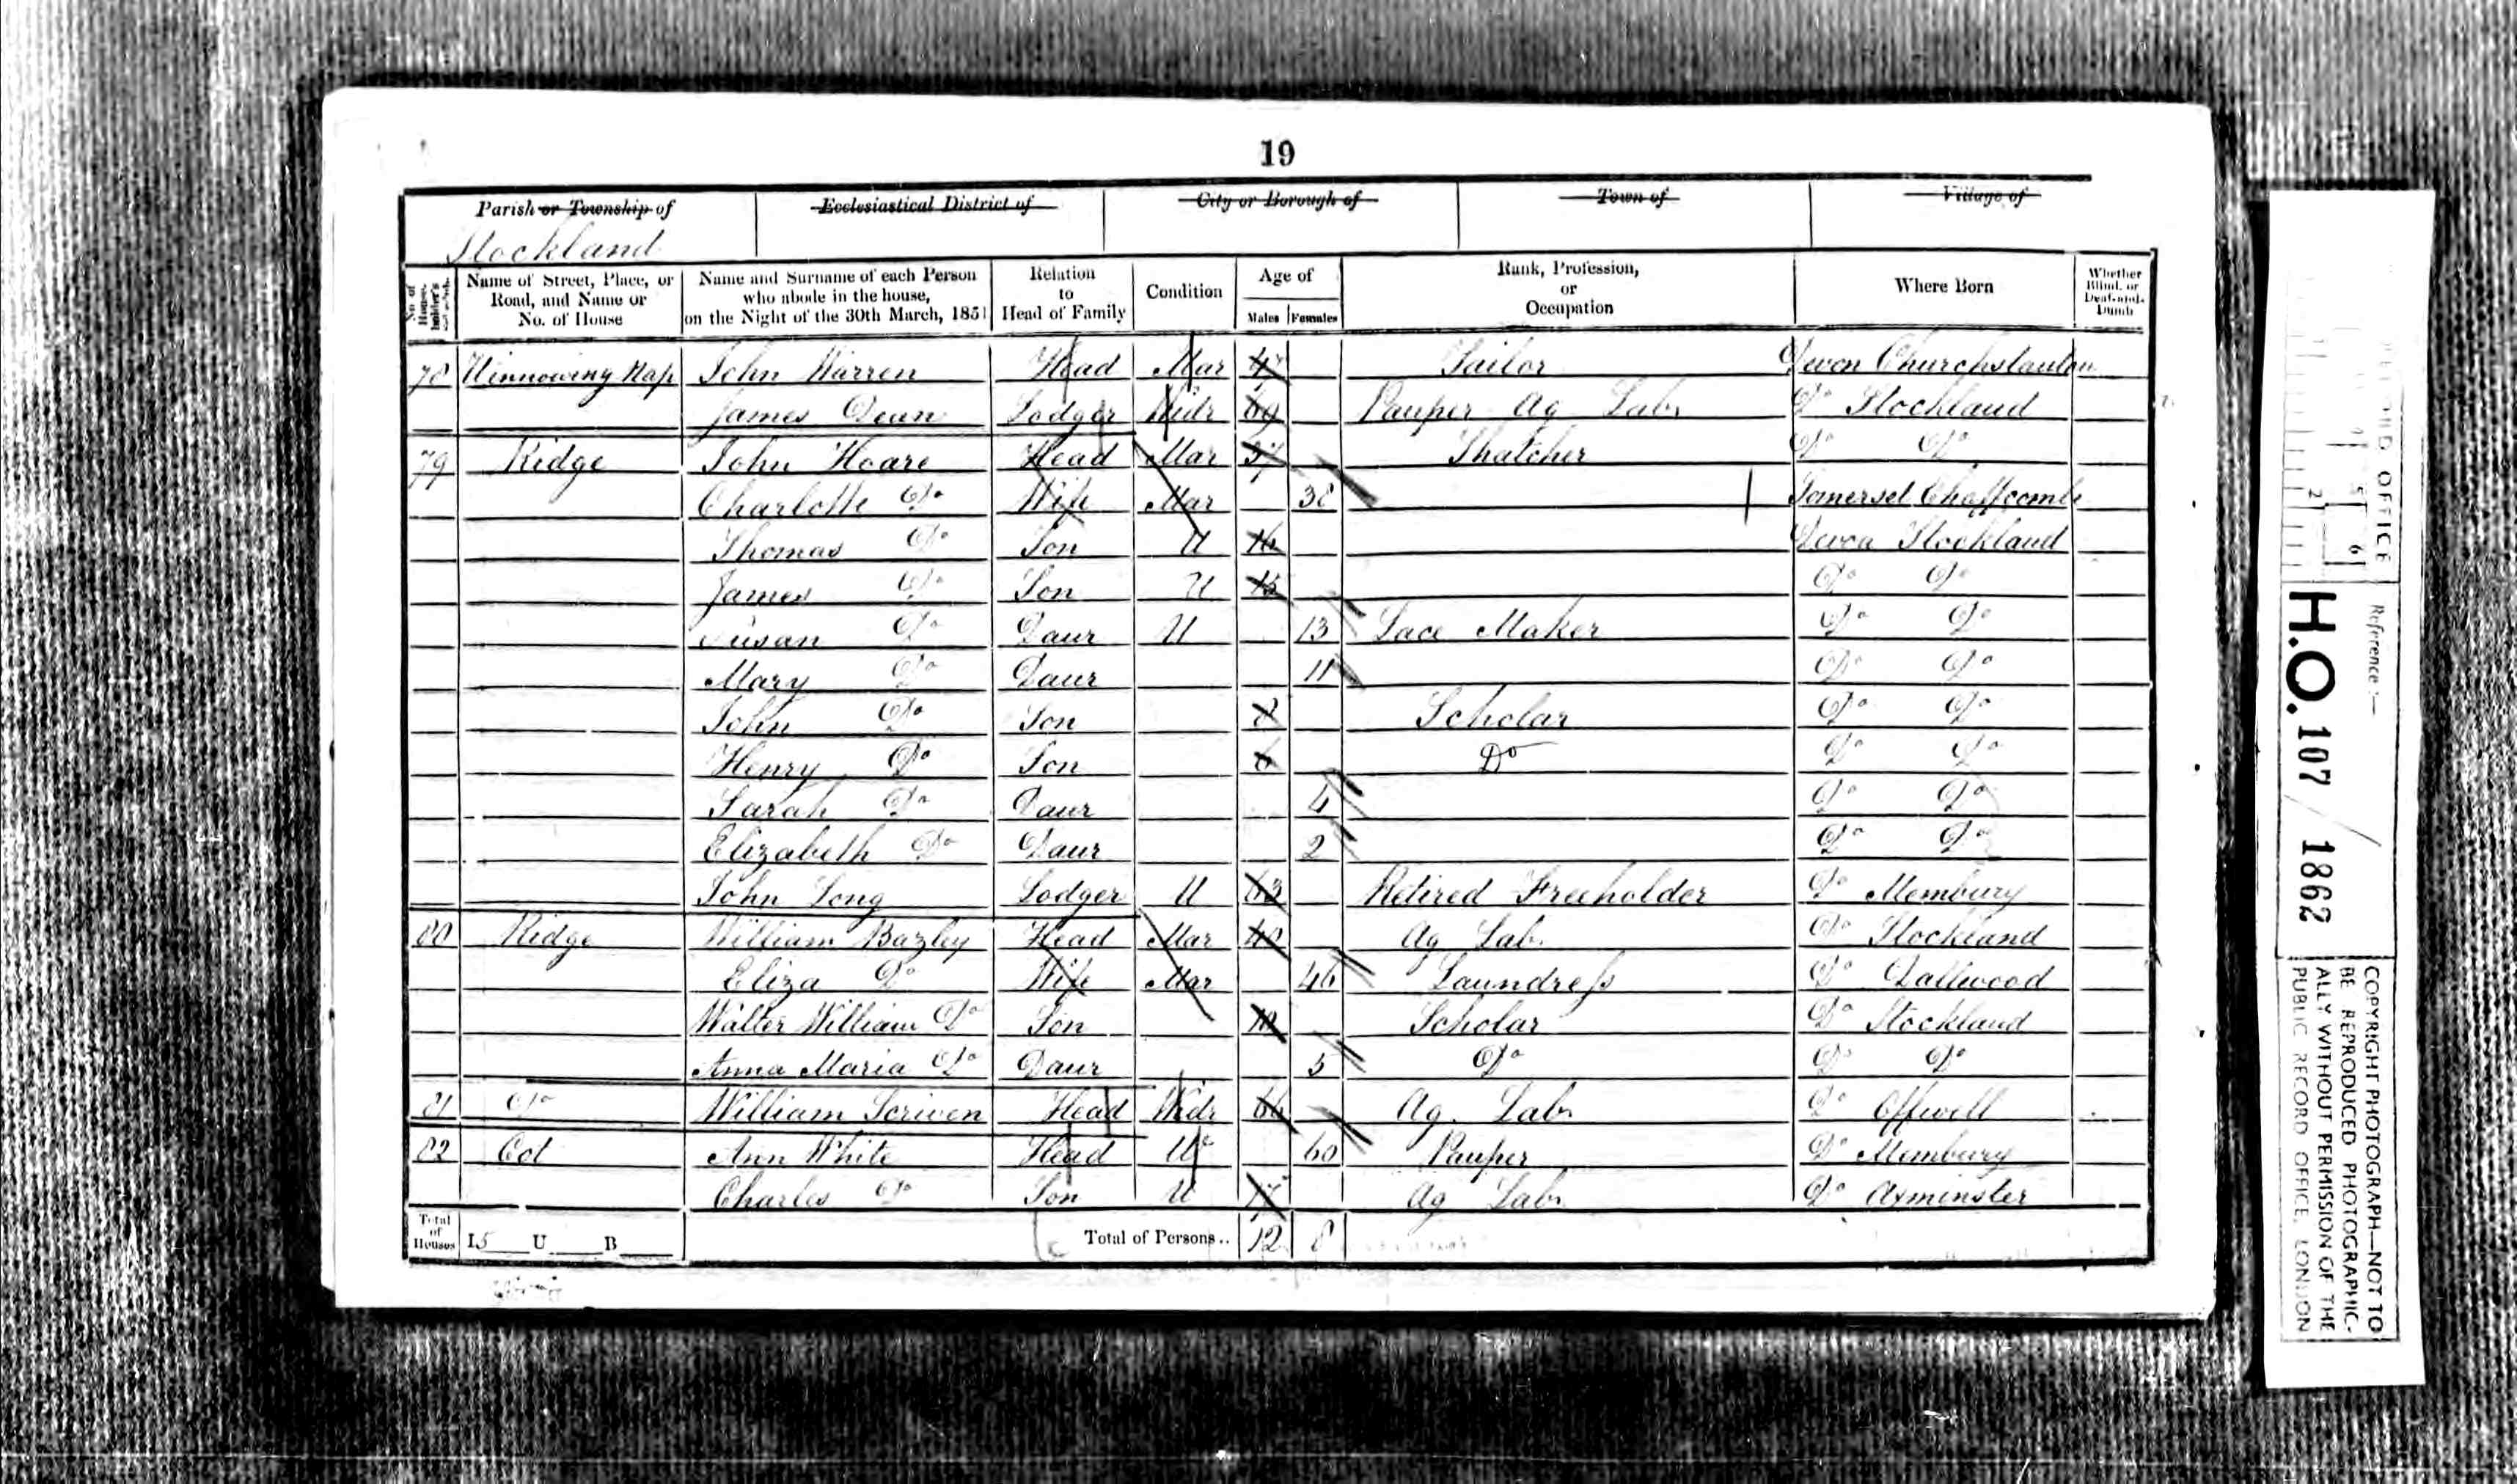 19
Parish or Township of Ecclesiastical District of City or Borough of Town of Village of
Stockland
No. of House-holder's Name of Street, Place, or Road, and Name or No. of House Name and Surname of each Person who abode in the house, on the Night of the 30th March, 1851 Relation to Head of Family Condition Age of Males Females Rank, Profession, or Occupation Where Born Whether Blind, or Deaf-and-Dumb
78 John Warren Head Mar 47 Tailor Devon Churchstanton
James Dean Lodger Widr 69 Pauper Ag Lab. Do Stockland
79 Ridge John Hoare Head Mar 37 Thatcher Do Do
Charlotte Do Wife Mar 38 Somerset Chaffcombe
Thomas Do Son U 16 Devon Stockland
James Do Son U 15 Do Do
Susan Do Daur U 13 Lace Maker Do Do
Mary Do Daur 11 Do Do
John Do Son 8 Scholar Do Do
Henry Do Son 6 Do Do Do
Sarah Do Daur 4 Do Do
Elizabeth Do Daur 2 Do Do
John Long Lodger U 63 Retired Freeholder Do Membury
80 Ridge William Bazley Head Mar 40 Ag Lab. Do Stockland
Eliza Do Wife Mar 46 Laundress Do Dallwood
Walter William Do Son 10 Scholar Do Stockland
Anna Maria Do Daur 5 Do Do Do
81 Do William Scriven Head Widr 66 Ag. Lab. Do Offwell
82 Cot Ann White Head U 60 Pauper Do Membury
Charles Do Son U 17 Ag Lab. Do Axminster
Total of Houses I 5 U B Total of Persons.. 12 8
Reference :—
H.O. 107 / 1862
COPYRIGHT PHOTOGRAPH—NOT TO
BE REPRODUCED PHOTOGRAPHIC-
ALLY WITHOUT PERMISSION OF THE
PUBLIC RECORD OFFICE, LONDON